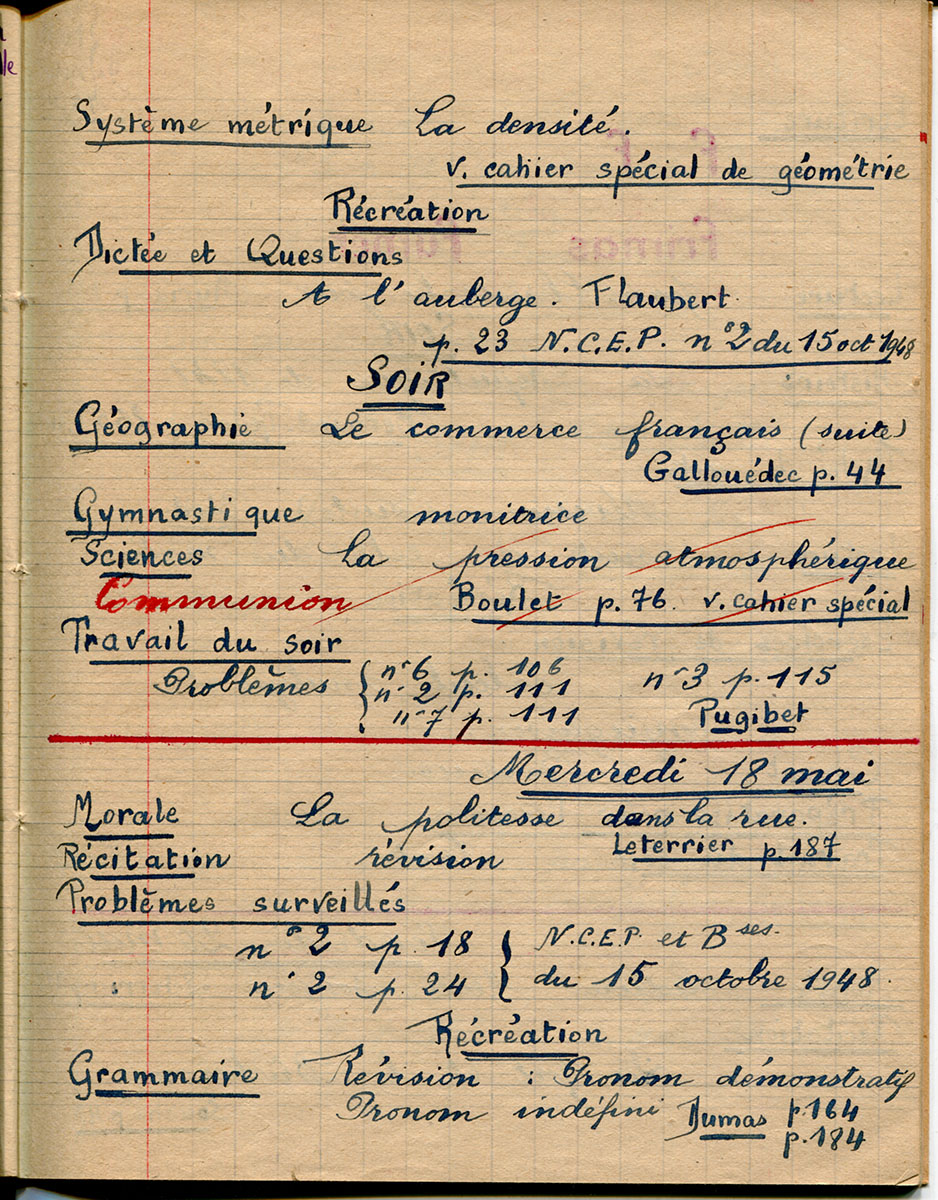 Système métrique La densité.
v. cahier spécial de géométrie
Récréation
Dictée et Questions
A l'auberge. Flaubert
p. 23 N.C.E.P. n°2 du 15 oct 1948
SOIR
Géographie Le commerce français (suite)
Gallouédec p. 44
Gymnastique monitrice
Sciences La pression atmosphérique
Communion Boulet p. 76. v. cahier spécial
Travail du soir
Problèmes { n°6 p. 106 n°3 p. 115
n° 2 p. 111
n°7 p. 111 Pugibet
Mercredi 18 mai
Morale La politesse dans la rue.
Leterrier p. 187
Récitation révision
Problèmes surveillés
n° 2 p. 18 } N.C.E.P. et Bses.
n° 2 p. 24 du 15 octobre 1948.
Récréation
Grammaire Révision : Pronom démonstratif
Pronom indéfini Dumas p. 164
p. 184